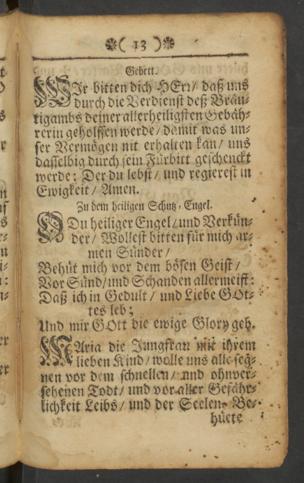 ( 13 )
Gebett.
WIr bitten dich HErr/ daß uns
durch die Verdienst deß Bräu-
tigambs deiner allerheiligsten Gebäh-
rerin geholffen werde/ damit was un-
ser Vermögen nit erhalten kan/ uns
dasselbig durch sein Fürbitt geschenckt
werde: Der du lebst/ und regierest in
Ewigkeit/ Amen.
Zu dem heiligen Schutz-Engel.
O Du heiliger Engel/ und Verkün-
der/ Wollest bitten für mich ar-
men Sünder/
Behüt mich vor dem bösen Geist/
Vor Sünd/ und Schanden allermeist:
Daß ich in Gedult/ und Liebe GOt-
tes leb;
Und mir GOtt die ewige Glory geb.
MAria die Jungfrau mit ihrem
lieben Kind/ wolle uns alle seg-
nen vor dem schnellen/ und ohnver-
sehenen Todt/ und vor aller Gefähr-
lichkeit Leibs/ und der Seelen. Be-
hüete